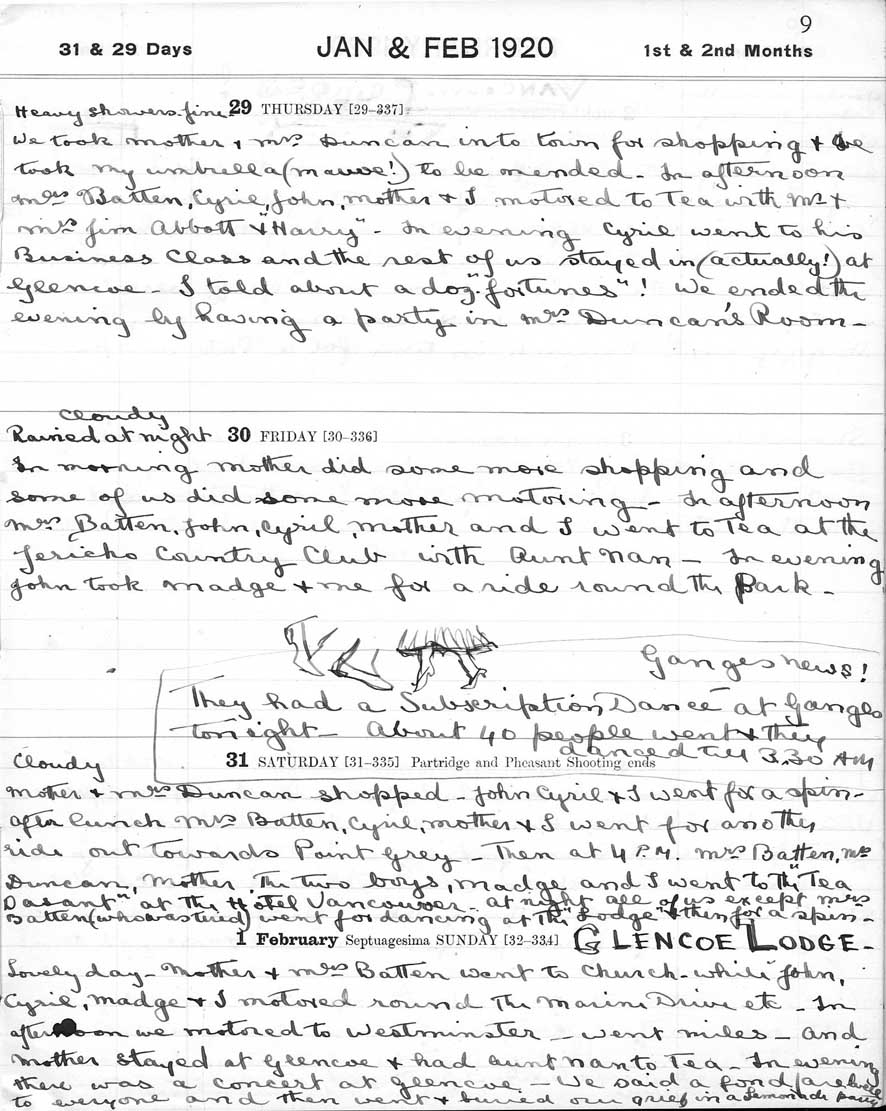 9
31 & 29 Days JAN & FEB 1920 1st & 2nd Months
Heavy showers. fine 29 THURSDAY [29-337]
We took mother & Mrs Duncan into town for shopping & we
took my umbrella (mauve!) to be mended - In afternoon
Mrs Batten, Cyril, John, mother & I motored to Tea with Mr &
Mrs Jim Abbott & "Harry" - In evening Cyril went to his
Business Class and the rest of us stayed in (actually!) at
Glencoe - I told about a doz "fortunes"! We ended the
evening by having a party in Mrs Duncan's Room -
Cloudy
Rained at night 30 FRIDAY [30-336]
In morning mother did some more shopping and
some of us did some more motoring - In afternoon
Mrs Batten, John, Cyril, mother and I went to Tea at the
Jericho Country Club with Aunt Nan - In evening
John took Madge & me for a ride round the Park -
Ganges news!
They had a Subscription Dance at Ganges
tonight - About 40 people went & they
danced till 3.30 AM
31 SATURDAY [31-335] Partridge and Pheasant Shooting ends
Cloudy
Mother & Mrs Duncan shopped - John Cyril & I went for a spin -
after lunch Mrs Batten, Cyril, mother & I went for another
ride out towards Point Grey - Then at 4 P.M. Mrs Batten, Mrs
Duncan, Mother, The two boys, Madge and I went to the "Tea
Dasant" at the Hotel Vancouver - at night all of us except Mrs
Batten (who was tired) went for dancing at the "Lodge" & then for a spin -
1 February Septuagesima SUNDAY [32-334] GLENCOE LODGE -
Lovely day - Mother & Mrs Batten went to Church - while John,
Cyril, Madge & I motored round the Marine Drive etc - In
afternoon we motored to Westminster - went miles - and
Mother stayed at Glencoe & had Aunt Nan to Tea - In evening
there was a concert at Glencoe - We said a fond farewell
to everyone and then went & buried our grief in a Lemonade party